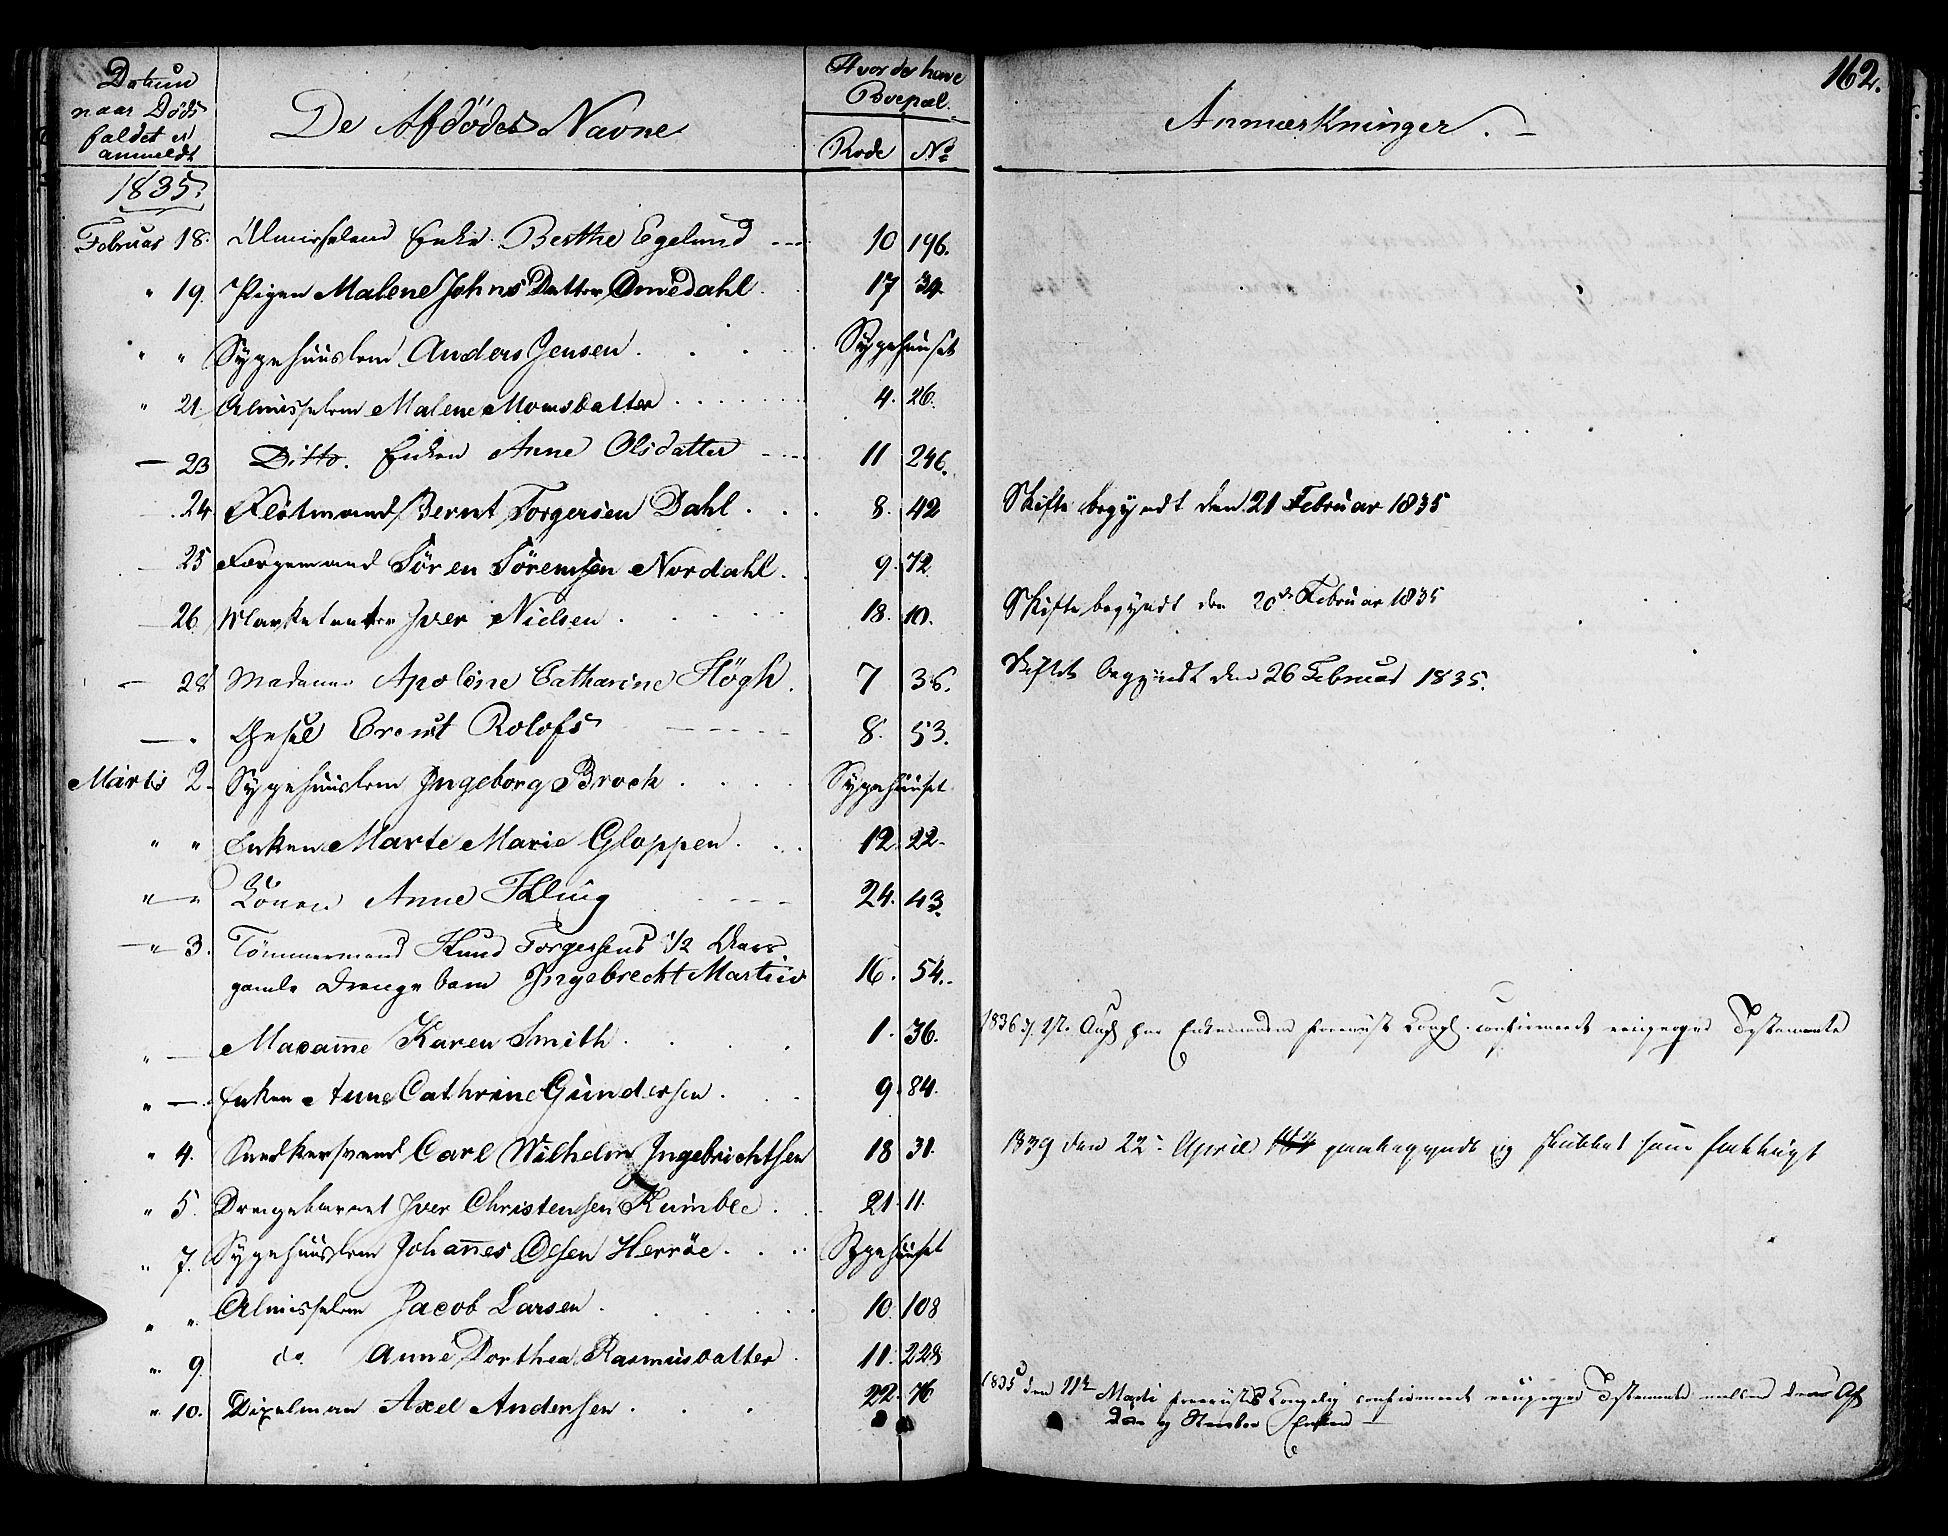 162.
Datum naar Dødsfaldet er anmeldt
De Afdödes Navne
Hvor de have Boepæl.
Rode No
Anmærkninger.
1835.
Februar 18. Almisselem Enke Berthe Egelund 10 196.
" 19. Pigen Malene Johns Datter Omedahl. 17 34
" " Sygehuuslem Anders Jensen. Sygehuuset
" 21 Almisselem Malene Monsdatter 4. 26.
— 23 Ditto. Enken Anne Olsdatter 11 246.
24 Flötmand Bernt Torgersen Dahl. 8. 42 Skifte begyndt den 21 Februar 1835
25 Færgemand Sören Sörensen Nordahl. 9. 72
26 Marketenter Iver Nielsen 18. 10. Skifte begyndt den 20de Februar 1835
— 28 Madame Apoline Catharine Högh. 7 36. Skiftet begyndt den 26 Februar 1835.
— " Gesel Ernst Rolofs 8. 53.
Marts 2. Sygehuuslem Ingeborg Broch Sygehuuset
" " Enken Marte Marie Gloppen. 12. 22.
" " Konen Anne Kling 24. 43.
" 3. Tömmermand Knud Torgersens 1/2 Aars
gamle Drengebarn Ingebrecht Martin 16. 54.
" — Madame Karen Smith. 1. 36. 1836 Enkemanden Kongl. confirmeret Testamente
" — Enken Anne Cathrine Gundersen. 9. 84.
" 4. Snedkersvend Carl Wilhelm Ingebrichtsen 18 31. 1839 den 22 April og sluttet som
" 5. Drengebarnet Iver Christensen Kumble. 21. 11.
" 7. Sygehuuslem Johannes Olsen Herröe. Sygehuuset
" " Almisselem Jacob Larsen. 10. 108
" 9. do Anne Dorthea Rasmusdatter. 11. 228
" 10. Dixelman Axel Andersen. 22. 76 1835 den 11te Marti Kongelig confirmeret Testamente mellem den Af
Döde og Enken —